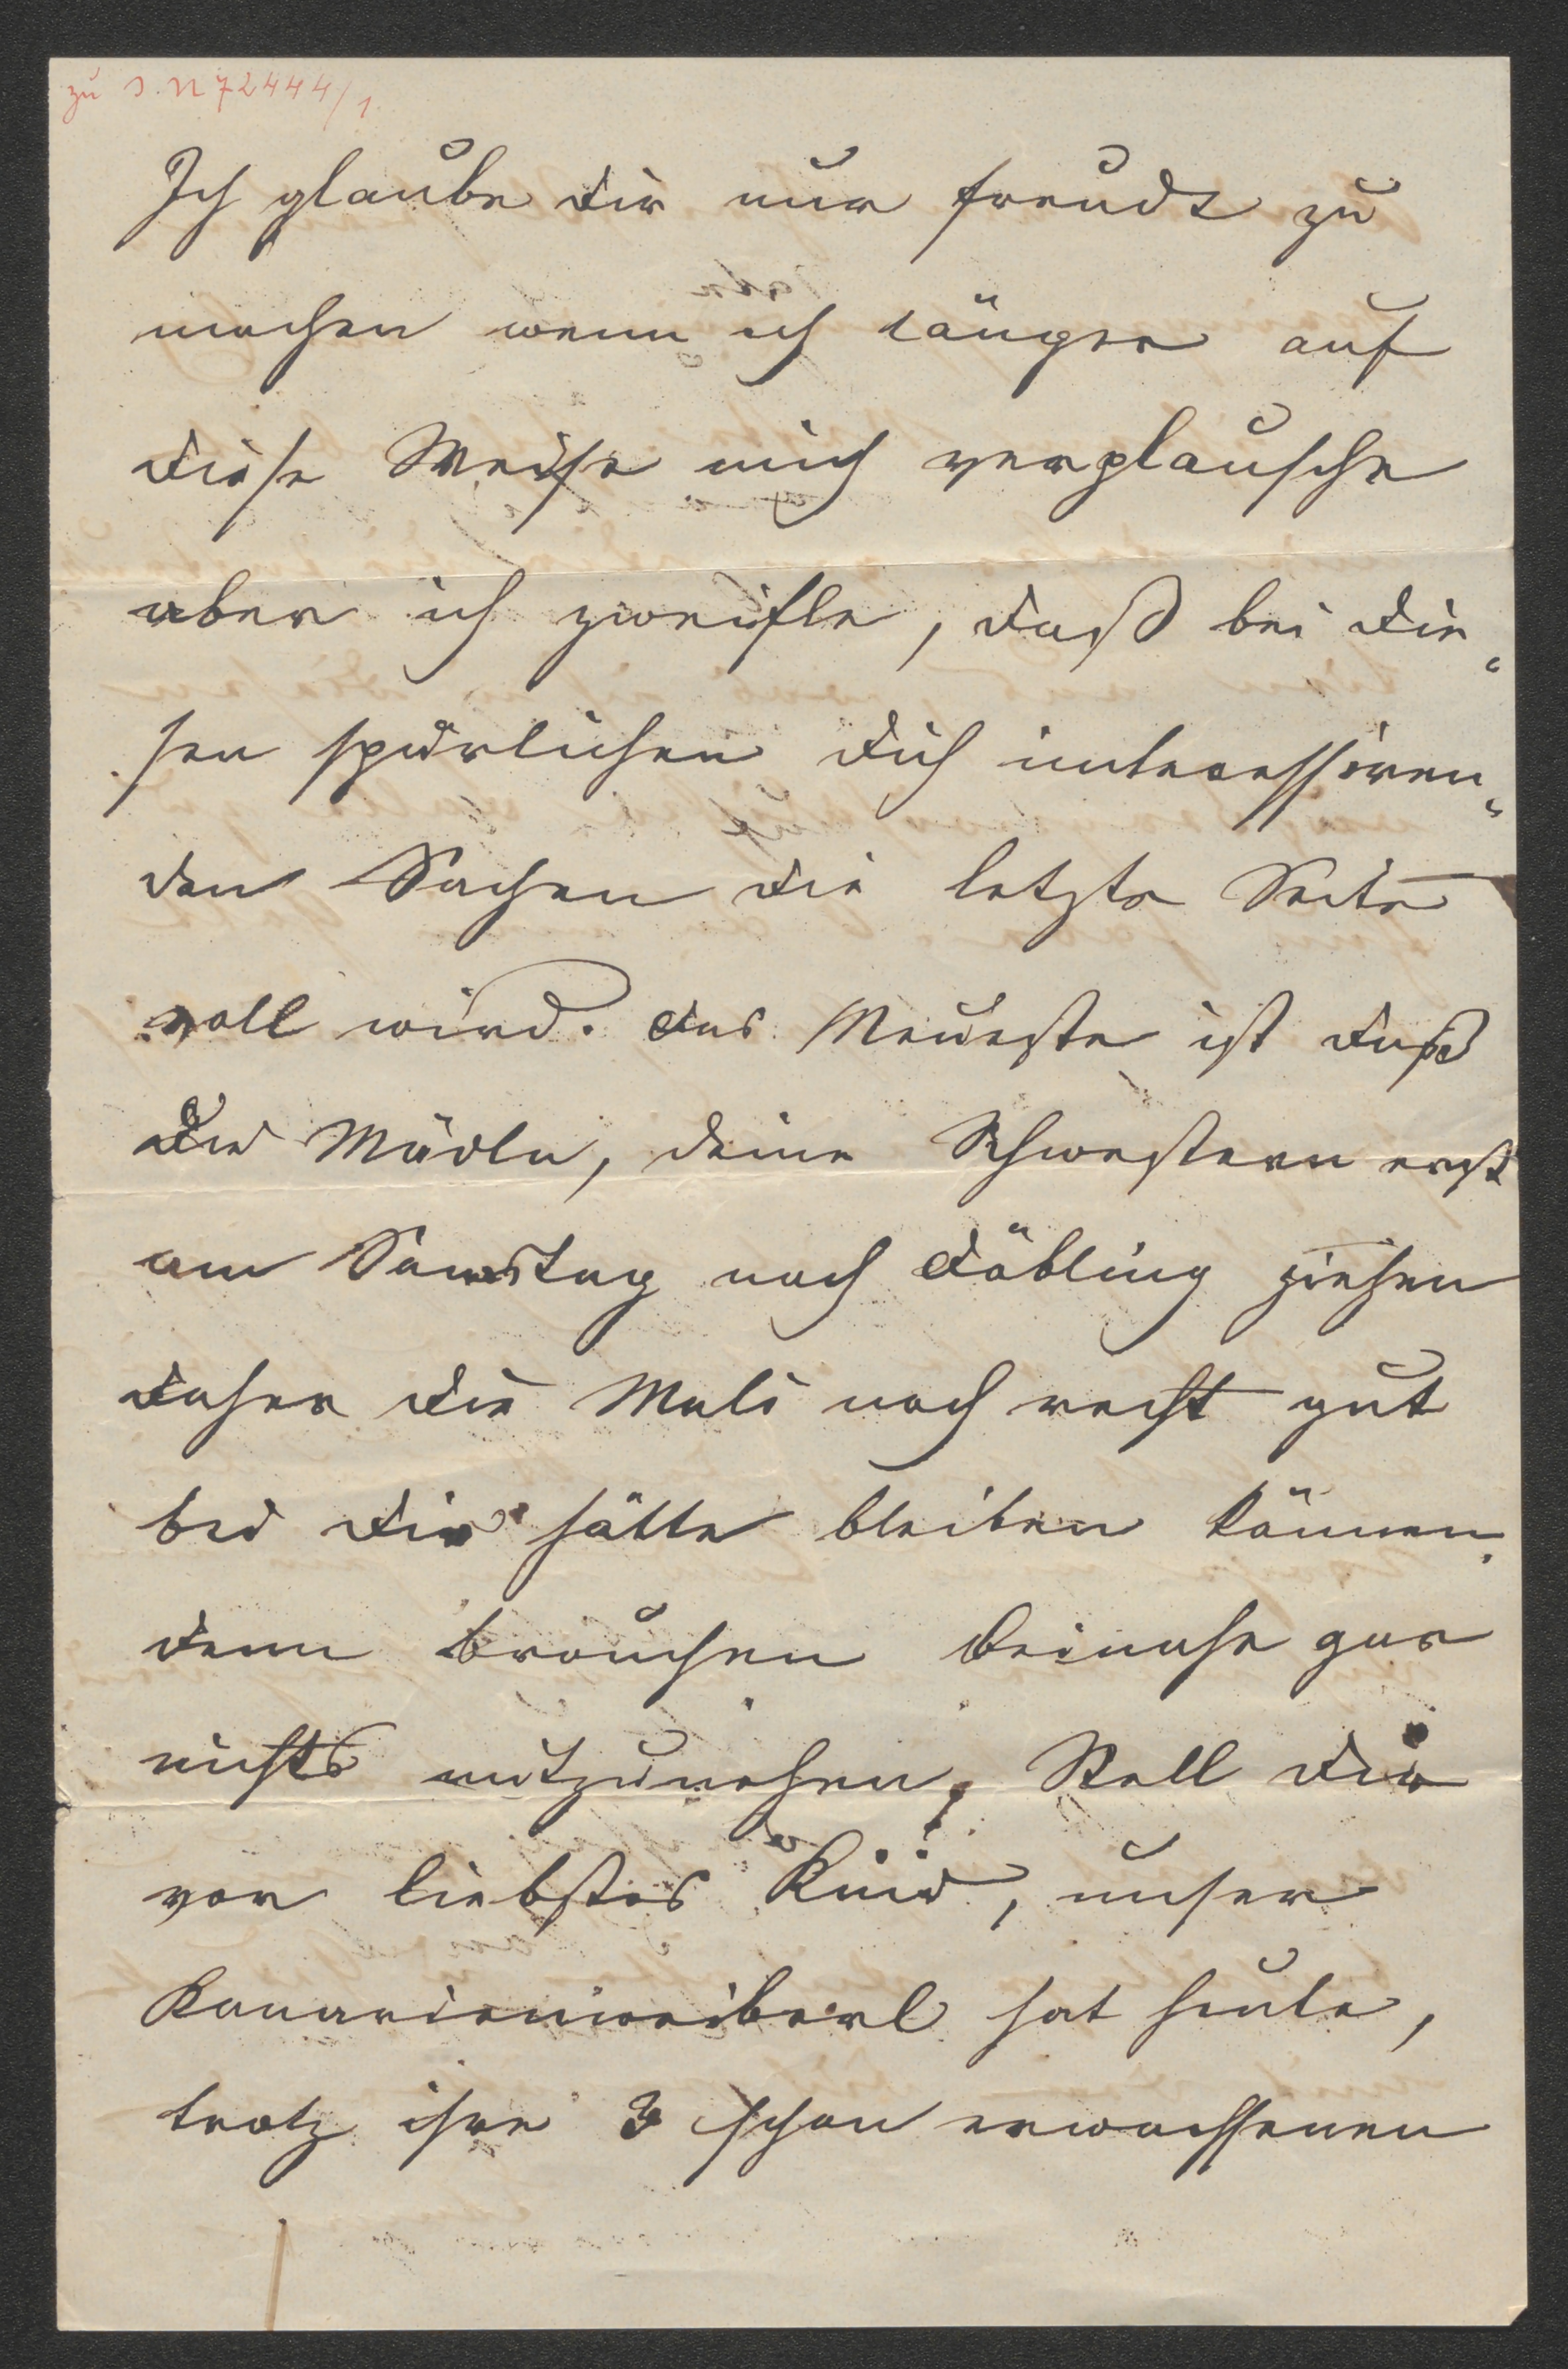 zu I.N 72444/1
Ich glaube dir nur freude zu
machen wenn ich länger auf
diese Weise mich verplausche
aber ich zweifle, daß bei die„
sen spärlichen dich interessiren„
den Sachen die letzte Seite
voll wird. das Neueste ist daß
die Mädln, deine Schwestern erst
am Samstag nach Döbling ziehen
daher die Mali noch recht gut
bei dir hätte bleiben können,
denn brauchen beinahe gar
nichts mitzunehmen. Stell dir
vor liebstes Kind, unser
Kanarienweiberl hat heute,
trotz ihre 3 schon erwachsenen